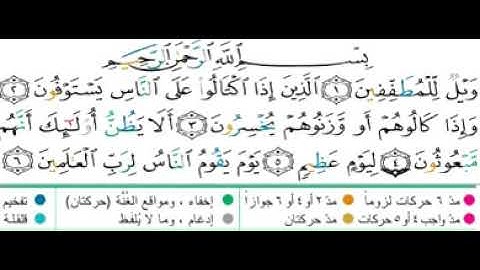 بِسْمِ اللَّهِ الرَّحْمَٰنِ الرَّحِيمِ
وَيْلٌ لِّلْمُطَفِّفِينَ ١ الَّذِينَ إِذَا اكْتَالُوا عَلَى النَّاسِ يَسْتَوْفُونَ ٢
وَإِذَا كَالُوهُمْ أَو وَّزَنُوهُمْ يُخْسِرُونَ ٣ أَلَا يَظُنُّ أُولَٰئِكَ أَنَّهُم
مَّبْعُوثُونَ ٤ لِيَوْمٍ عَظِيمٍ ٥ يَوْمَ يَقُومُ النَّاسُ لِرَبِّ الْعَالَمِينَ ٦
مدّ ٦ حركات لزوماً مدّ ٢ أو ٤ أو ٦ جوازاً إخفاء ، ومواقع الغُنَّة (حركتان) تفخيم
مدّ واجب ٤ أو ٥ حركات مدّ حركتان إدغام ، وما لا يُلفَظ القلقلة